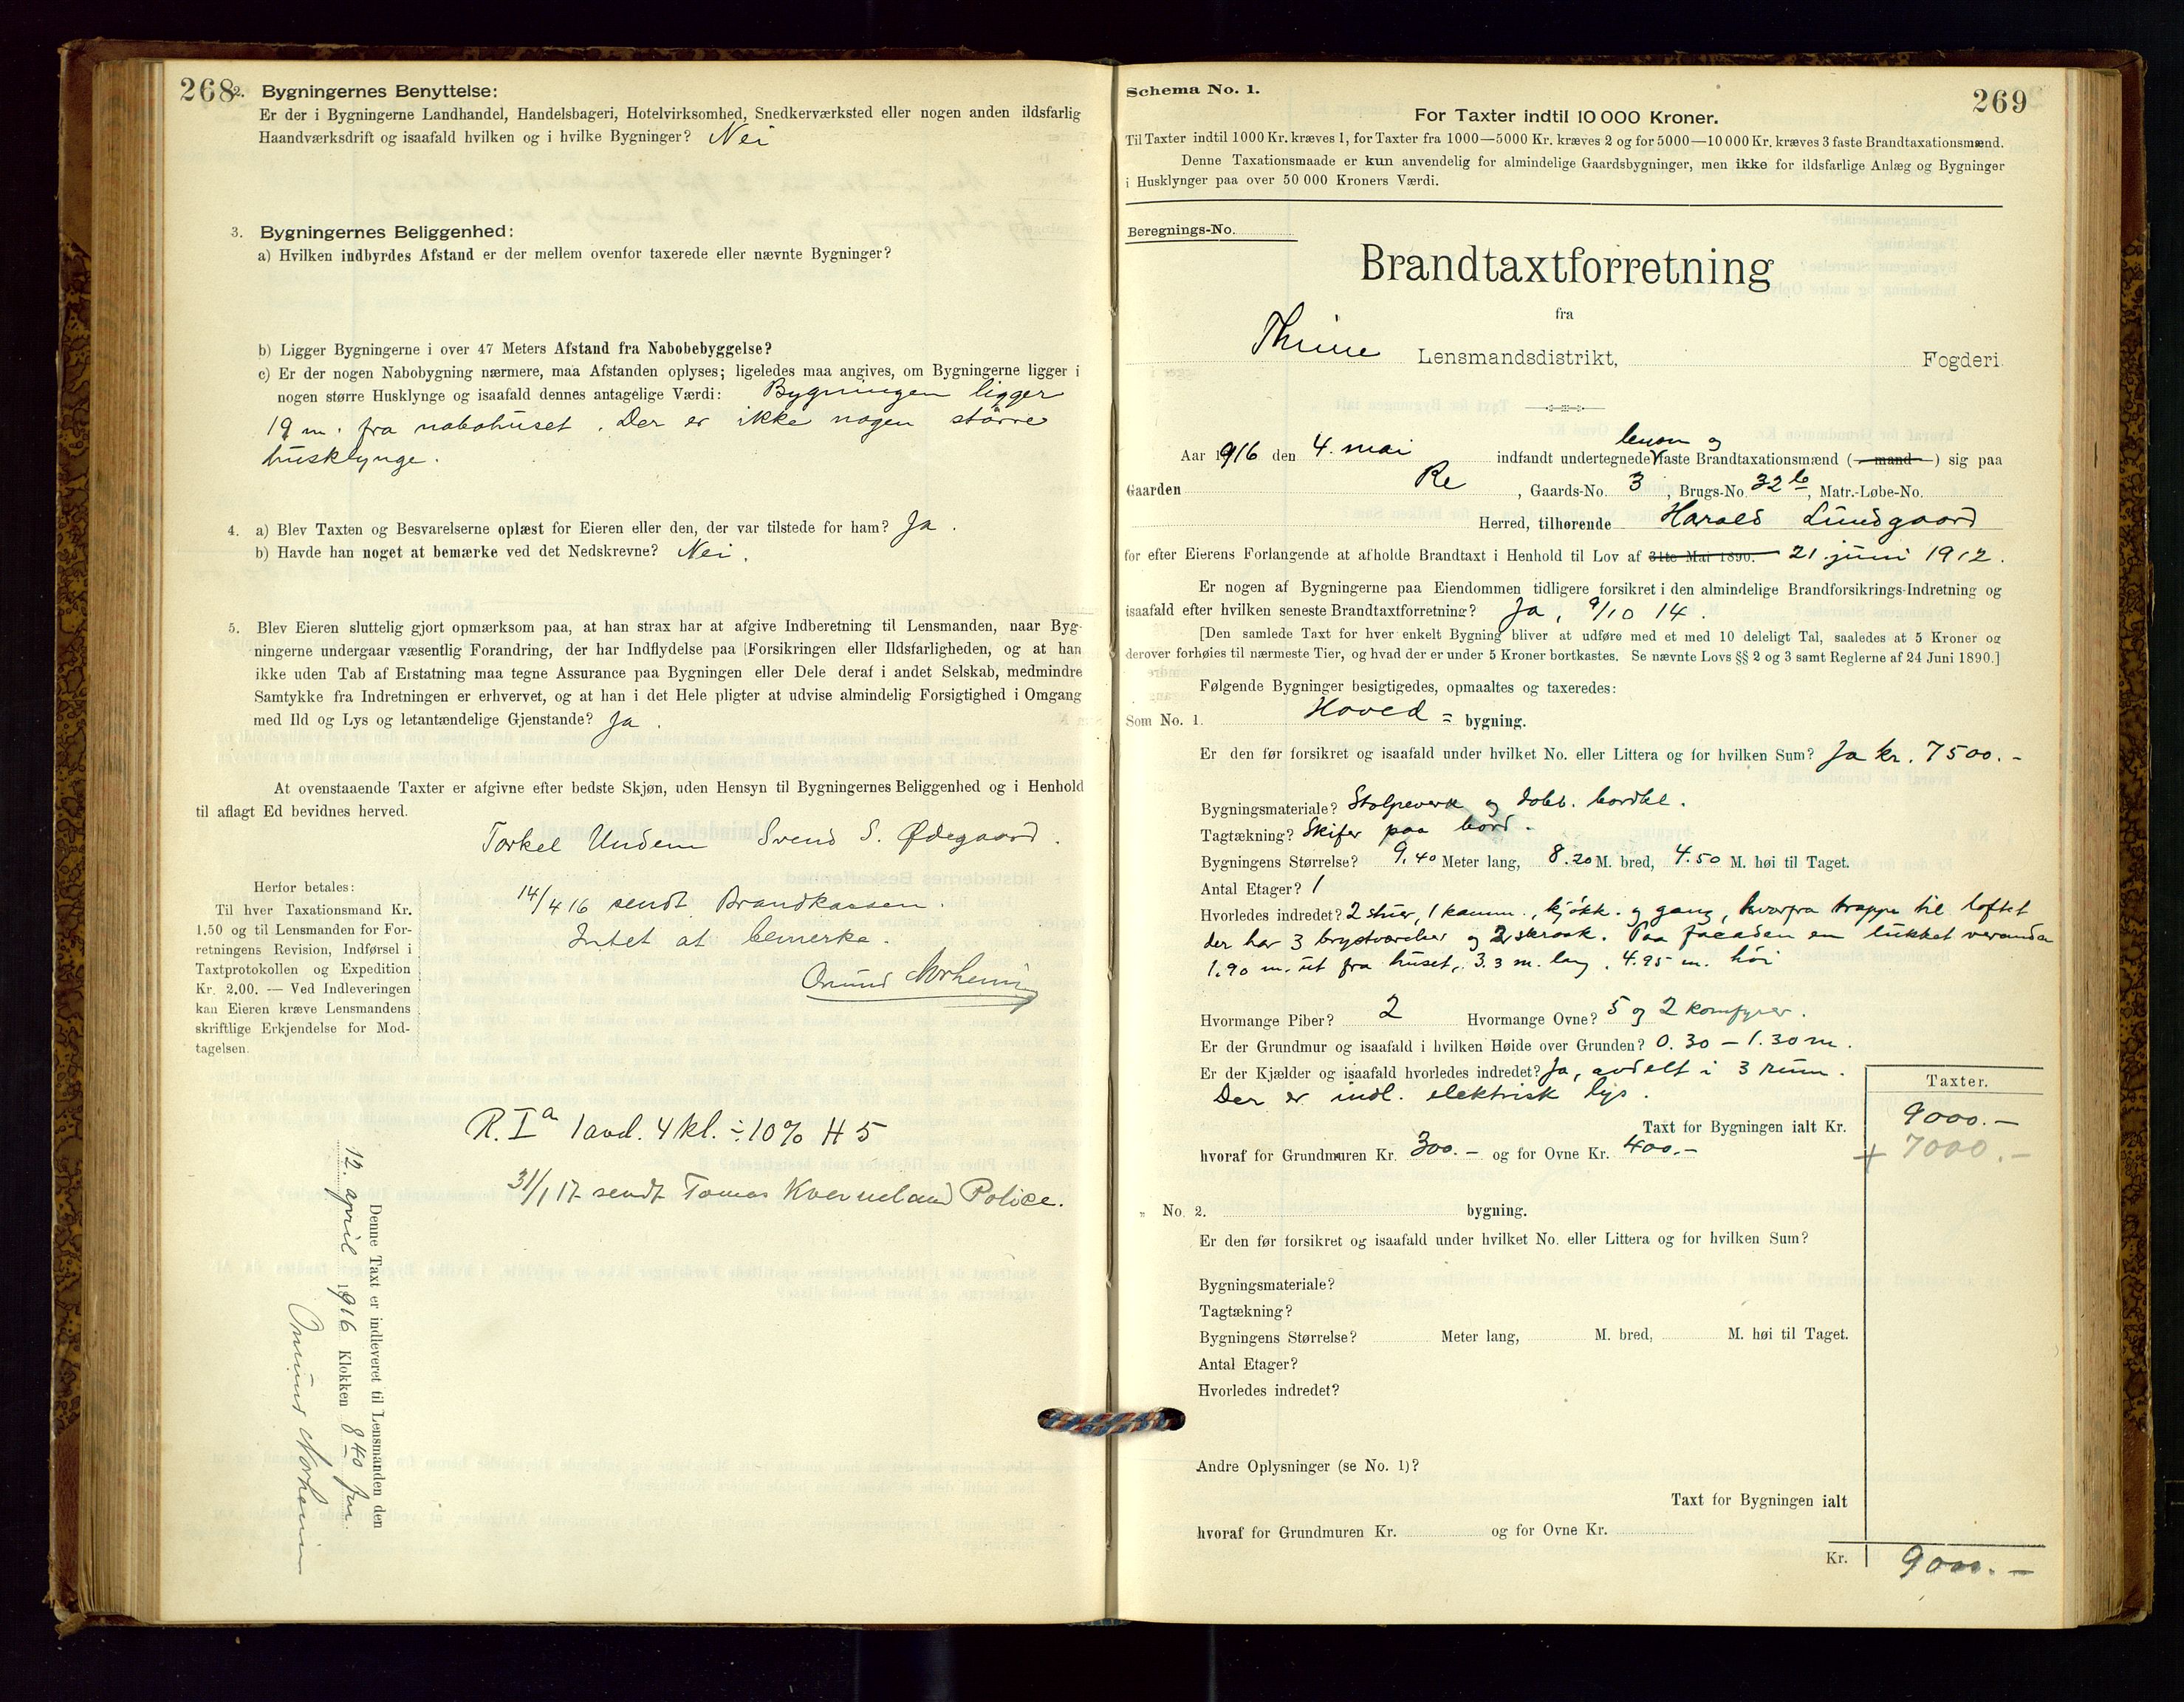 268
2. Bygningernes Benyttelse:
Er der i Bygningerne Landhandel, Handelsbageri, Hotelvirksomhed, Snedkerværksted eller nogen anden ildsfarlig
Haandværksdrift og isaafald hvilken og i hvilke Bygninger? Nei
3. Bygningernes Beliggenhed:
a) Hvilken indbyrdes Afstand er der mellem ovenfor taxerede eller nævnte Bygninger?
b) Ligger Bygningerne i over 47 Meters Afstand fra Nabobebyggelse?
c) Er der nogen Nabobygning nærmere, maa Afstanden oplyses; ligeledes maa angives, om Bygningerne ligger i
nogen større Husklynge og isaafald dennes antagelige Værdi: Bygningen ligger
19 m. fra nabohuset. Der er ikke nogen större
husklynge.
4. a) Blev Taxten og Besvarelserne oplæst for Eieren eller den, der var tilstede for ham? Ja.
b) Havde han noget at bemærke ved det Nedskrevne? Nei.
5. Blev Eieren sluttelig gjort opmærksom paa, at han strax har at afgive Indberetning til Lensmanden, naar Byg-
ningerne undergaar væsentlig Forandring, der har Indflydelse paa Forsikringen eller Ildsfarligheden, og at han
ikke uden Tab af Erstatning maa tegne Assurance paa Bygningen eller Dele deraf i andet Selskab, medmindre
Samtykke fra Indretningen er erhvervet, og at han i det Hele pligter at udvise almindelig Forsigtighed i Omgang
med Ild og Lys og letantændelige Gjenstande? Ja.
At ovenstaaende Taxter er afgivne efter bedste Skjøn, uden Hensyn til Bygningernes Beliggenhed og i Henhold
til aflagt Ed bevidnes herved.
Torkel Undem Svend S. Ødegaard.
Herfor betales:
Til hver Taxationsmand Kr.
1.50 og til Lensmanden for For-
retningens Revision, Indførsel i
Taxtprotokollen og Expedition
Kr. 2.00. — Ved Indleveringen
kan Eieren kræve Lensmandens
skriftlige Erkjendelse for Mod-
tagelsen.
14/4 16 sendt Brandkassen.
Intet at bemerke.
Omund Norheim
R. Iª 1 avd. 4 kl. ÷ 10% H 5
31/1 17 sendt Tomas Kverneland Police.
Denne Taxt er indleveret til Lensmanden den
12. april 1916 Klokken 8 40 fm.
Omund Norheim
269
Schema No. 1.
For Taxter indtil 10 000 Kroner.
Til Taxter indtil 1000 Kr. kræves 1, for Taxter fra 1000—5000 Kr. kræves 2 og for 5000—10 000 Kr. kræves 3 faste Brandtaxationsmænd.
Denne Taxationsmaade er kun anvendelig for almindelige Gaardsbygninger, men ikke for ildsfarlige Anlæg og Bygninger
i Husklynger paa over 50 000 Kroners Værdi.
Beregnings-No.
Brandtaxtforretning
fra
Thime Lensmandsdistrikt, Fogderi.
lensm og
Aar 1916 den 4. mai indfandt undertegnede faste Brandtaxationsmænd (mand) sig paa
Gaarden Re, Gaards-No. 3, Brugs-No. 32 b, Matr.-Løbe-No.
Herred, tilhørende Harald Lundgaard
for efter Eierens Forlangende at afholde Brandtaxt i Henhold til Lov af 31te Mai 1890. 21 juni 1912.
Er nogen af Bygningerne paa Eiendommen tidligere forsikret i den almindelige Brandforsikrings-Indretning og
isaafald efter hvilken seneste Brandtaxtforretning? Ja, 9/10 14.
[Den samlede Taxt for hver enkelt Bygning bliver at udføre med et med 10 deleligt Tal, saaledes at 5 Kroner og
derover forhøies til nærmeste Tier, og hvad der er under 5 Kroner bortkastes. Se nævnte Lovs §§ 2 og 3 samt Reglerne af 24 Juni 1890.]
Følgende Bygninger besigtigedes, opmaaltes og taxeredes:
Som No. 1. Hoved = bygning.
Er den før forsikret og isaafald under hvilket No. eller Littera og for hvilken Sum? Ja kr. 7500.-
Bygningsmateriale? Stolpeverk og dobb. bordkl.
Tagtækning? Skifer paa bord.
Bygningens Størrelse? 9.40 Meter lang, 8.20 M. bred, 4.50 M. høi til Taget.
Antal Etager? 1
Hvorledes indredet? 2 stuer, 1 kamm., kjökk. og gang, hvorfra trappe til loftet
der har 3 brystværelser og 2 skraak. Paa facaden en lukket veranda
1.90 m. ut fra huset, 3.3 m. lang, 4.95 m. höi
Hvormange Piber? 2 Hvormange Ovne? 5 og 2 komfyrer.
Er der Grundmur og isaafald i hvilken Høide over Grunden? 0.30 — 1.30 m.
Er der Kjælder og isaafald hvorledes indredet? Ja, avdelt i 3 rum.
Der er indl. elektrisk lys.
Taxter.
Taxt for Bygningen ialt Kr. 9000.—
hvoraf for Grundmuren Kr. 300.— og for Ovne Kr. 400.— + 7000.—
" No. 2. bygning.
Er den før forsikret og isaafald under hvilket No. eller Littera og for hvilken Sum?
Bygningsmateriale?
Tagtækning?
Bygningens Størrelse? Meter lang, M. bred, M. høi til Taget.
Antal Etager?
Hvorledes indredet?
Andre Oplysninger (se No. 1)?
Taxt for Bygningen ialt
hvoraf for Grundmuren Kr. og for Ovne Kr.
Kr. 9000.—